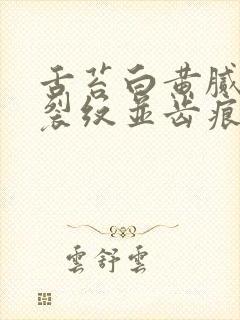 舌苔白黄腻
裂纹并齿痕
雲舒雲